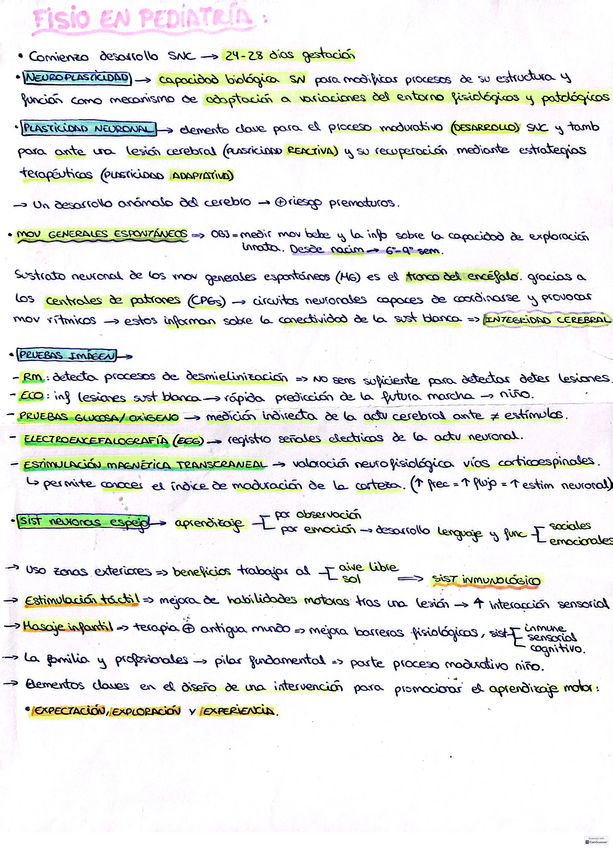 FISIO EN PEDIATRÍA:
• Comienzo desarrollo SNC → 24-28 días gestación
• NEUROPLASTICIDAD → capacidad biológica SN para modificar procesos de su estructura y
función como mecanismo de adaptación a variaciones del entorno fisiológicos y patológicos
• PLASTICIDAD NEURONAL → elemento clave para el proceso madurativo (DESARROLLO) SNC y tamb
para ante una lesión cerebral (PLASTICIDAD REACTIVA) y su recuperación mediante estrategias
terapeúticas (PLASTICIDAD ADAPTATIVA)
→ Un desarrollo anómalo del cerebro → ⊕ riesgo prematuros.
• MOV GENERALES ESPONTÁNEOS => OBJ = medir mov bebe y la info sobre la capacidad de exploración
innata. Desde nacim → 6ª-9ª sem.
Sustrato neuronal de los mov generales espontáneos (MG) es el tronco del encéfalo. gracias a
los centrales de patrones (CPGs) → circuitos neuronales capaces de coordinarse y provocar
mov rítmicos → estos informan sobre la conectividad de la sust blanca => INTEGRIDAD CEREBRAL
• PRUEBAS IMAGEN →
- RM: detecta procesos de desmielinización => No sens suficiente para detectar deter lesiones.
- ECO: inf lesiones sust blanca → rápida predicción de la futura marcha → niño.
- PRUEBAS GLUCOSA/OXÍGENO → medición indirecta de la actv cerebral ante ≠ estímulos.
- ELECTROENCEFALOGRAFÍA (EEG) → registro señales electricas de la actv neuronal.
- ESTIMULACIÓN MAGNÉTICA TRANSCRANEAL → valoración neurofisiológica vías corticoespinales.
↳ permite conocer el índice de maduración de la corteza. (↑ frec = ↑ flujo = ↑ estim neuronal)
• SIST neuronas espejo → aprendizaje [ por observación
por emoción → desarrollo lenguaje y func [ sociales
emocionales
→ Uso zonas exteriores => beneficios trabajar al [ aire libre
sol => SIST INMUNOLÓGICO
→ Estimulación táctil => mejora de habilidades motoras tras una lesión → ↑ interacción sensorial
→ Masaje infantil => terapia ⊕ antigua mundo => mejora barreras fisiológicas, sist [ inmune
sensorial
cognitivo.
→ La familia y profesionales → pilar fundamental => parte proceso madurativo niño.
→ Elementos claves en el diseño de una intervención para promocionar el aprendizaje motor:
• EXPECTACIÓN, EXPLORACIÓN Y EXPERIENCIA.